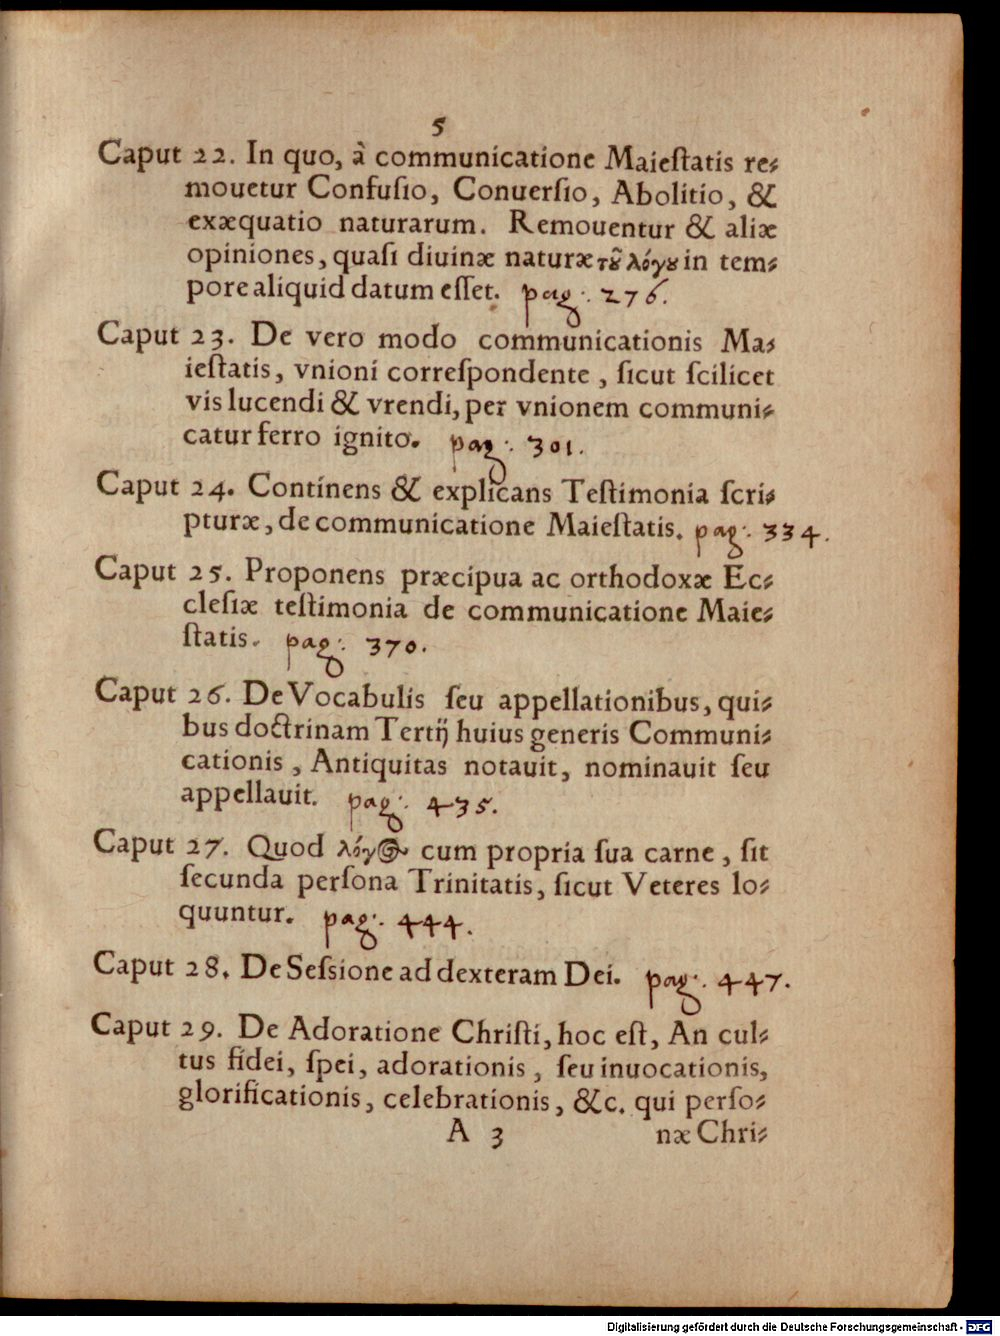 5
Caput 22. In quo, à communicatione Maieſtatis re⸗
mouetur Confuſio, Conuerſio, Abolitio, &
exæquatio naturarum. Remouentur & aliæ
opiniones, quaſi diuinæ naturæ τȣ͂ λόγȣ in tem⸗
pore aliquid datum eſſet. pag: 276.
Caput 23. De vero modo communicationis Ma⸗
ieſtatis, vnioni correſpondente, ſicut ſcilicet
vis lucendi & vrendi, per vnionem communi⸗
catur ferro ignito. pag: 301.
Caput 24. Continens & explicans Teſtimonia ſcri⸗
pturæ, de communicatione Maieſtatis. pag: 334.
Caput 25. Proponens præcipua ac orthodoxæ Ec⸗
cleſiæ teſtimonia de communicatione Maie⸗
ſtatis. pag: 370.
Caput 26. De Vocabulis ſeu appellationibus, qui⸗
bus doctrinam Tertij huius generis Communi⸗
cationis, Antiquitas notauit, nominauit ſeu
appellauit. pag: 435.
Caput 27. Quod λόγος cum propria ſua carne, ſit
ſecunda perſona Trinitatis, ſicut Veteres lo⸗
quuntur. pag: 444.
Caput 28. De Seſsione ad dexteram Dei. pag: 447.
Caput 29. De Adoratione Chriſti, hoc eſt, An cul⸗
tus fidei, ſpei, adorationis, ſeu inuocationis,
glorificationis, celebrationis, &c. qui perſo⸗
A 3 næ Chri⸗
Digitalisierung gefördert durch die Deutsche Forschungsgemeinschaft - DFG